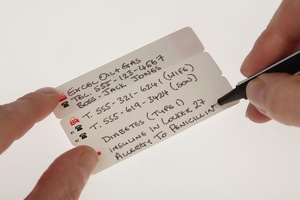 EXCEL OIL + GAS
TEL. 555-123-4567
BOSS - JACK JONES
T. 555-321-6241 (WIFE)
T. 555-619-3424 (SON)
DIABETES (TYPE 1)
INSULINE IN LOCKER 27
ALLERGY TO PENICILLIN